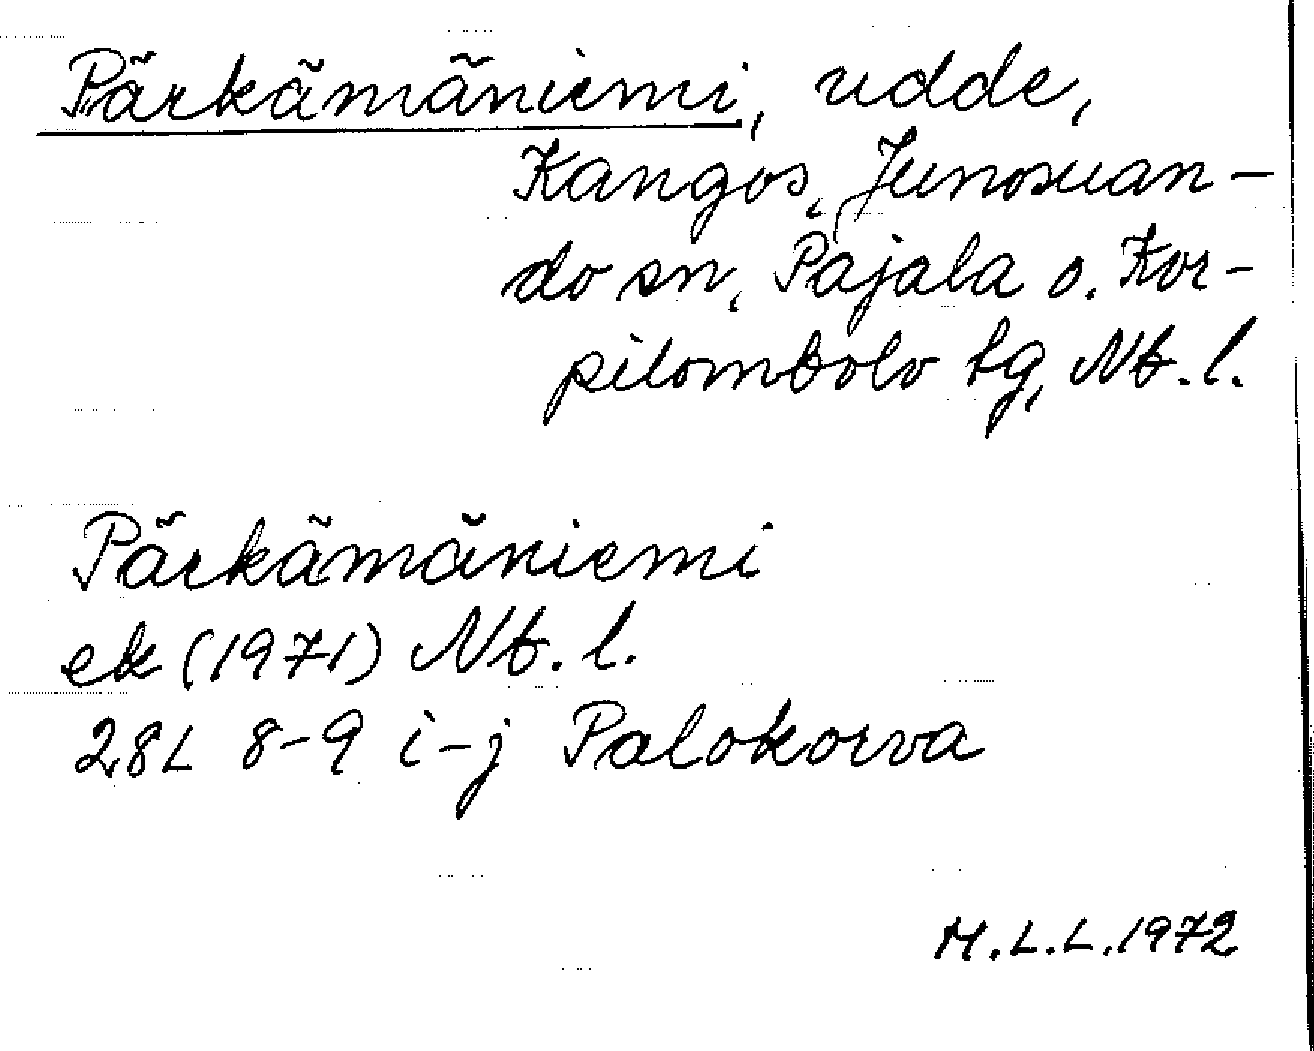 Pärkämäniemi, udde,
Kangos, Junosuan-
do sn, Pajala o. Kor-
pilombolo tg, Nb. l.
Pärkämäniemi
ek (1971) Nb. l.
28L 8-9 i-j Palokorva
M.L.L. 1972